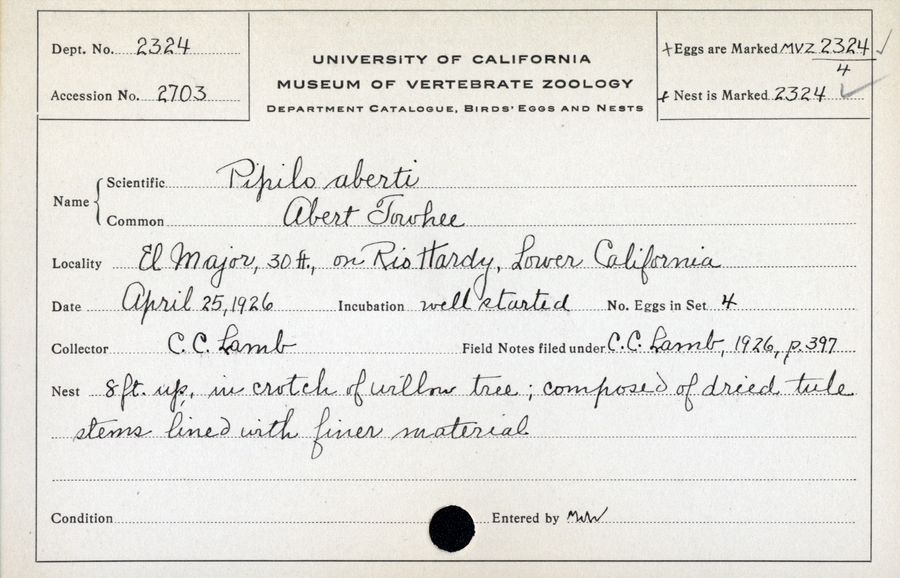 Dept. No. 2324
Accession No. 2703
UNIVERSITY OF CALIFORNIA
MUSEUM OF VERTEBRATE ZOOLOGY
DEPARTMENT CATALOGUE, BIRDS' EGGS AND NESTS
+Eggs are Marked MVZ 2324/4 ✓
+ Nest is Marked 2324 ✓
Name { Scientific Pipilo aberti
Common Abert Towhee
Locality El Major, 30 ft., on Rio Hardy, Lower California
Date April 25, 1926 Incubation well started No. Eggs in Set 4
Collector C.C. Lamb Field Notes filed under C.C. Lamb, 1926, p. 397
Nest 8 ft. up, in crotch of willow tree; composed of dried tule
stems lined with finer material
Condition Entered by